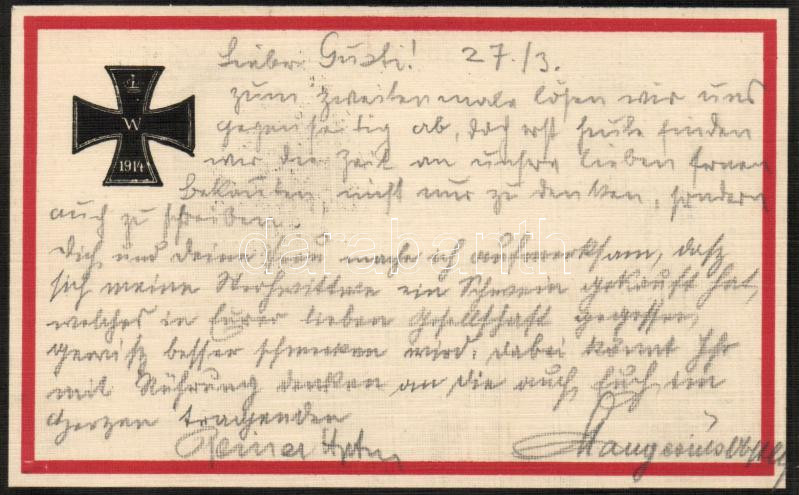 Lieber Gusti! 27./3.
W
1914
zum zweitenmale lösen wir uns
gegenseitig ab, doch erst heute finden
wir die Zeit an unsre lieben fernen
Bekannten nicht nur zu denken, sondern
auch zu schreiben.
Dich und deine Frau mache ich aufmerksam, daß
sich meine ein Schwein gekauft hat,
welches in Eurer lieben Gesellschaft gegessen,
gewiß besser schmecken wird; dabei könnt Ihr
mit Rührung denken an die auch Euch im
Herzen tragenden
darabanth